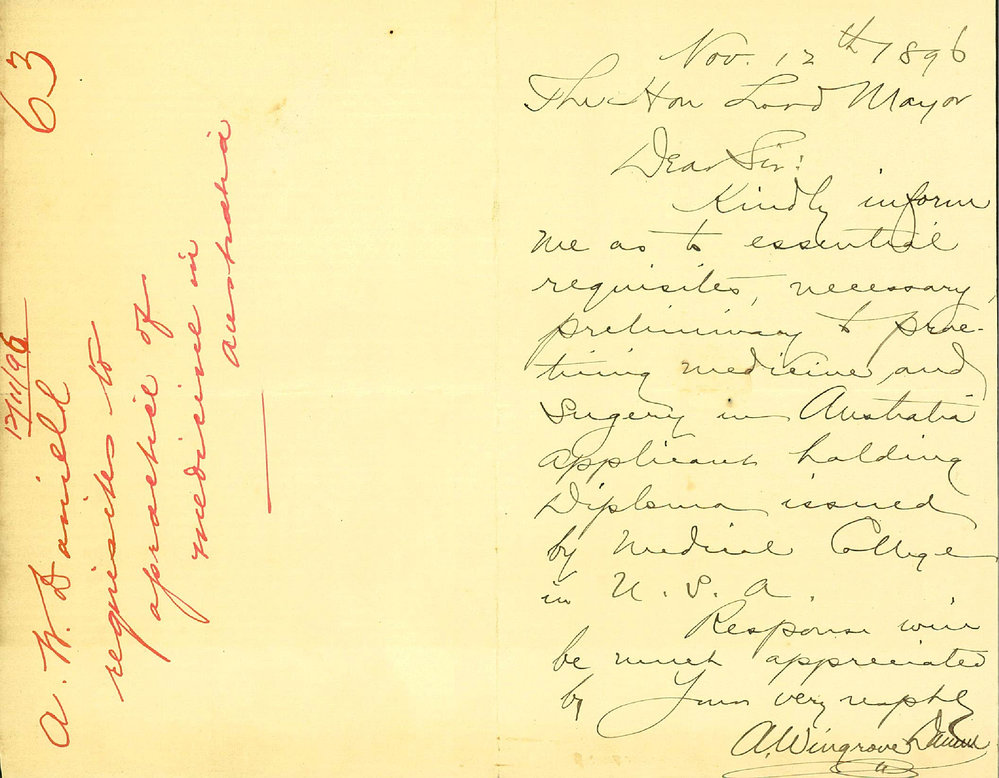 63
12/11/96
A. W. Daniell
requisites to
practice of
medicine in
Australia
Nov. 12th 1896
The Hon Lord Mayor
Dear Sir:
Kindly inform
me as to essential
requisites, necessary,
preliminary to prac-
ticing medicine and
Surgery in Australia
applicant holding
Diploma issued
by Medical College
in U. S. A.
Response will
be much appreciated
by Yours very resptly
A. Wingrove